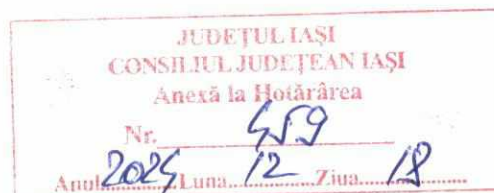 JUDEȚUL IAȘI
CONSILIUL JUDEȚEAN IAȘI
Anexă la Hotărârea
Nr. 459
Anul 2024 Luna 12 Ziua 18